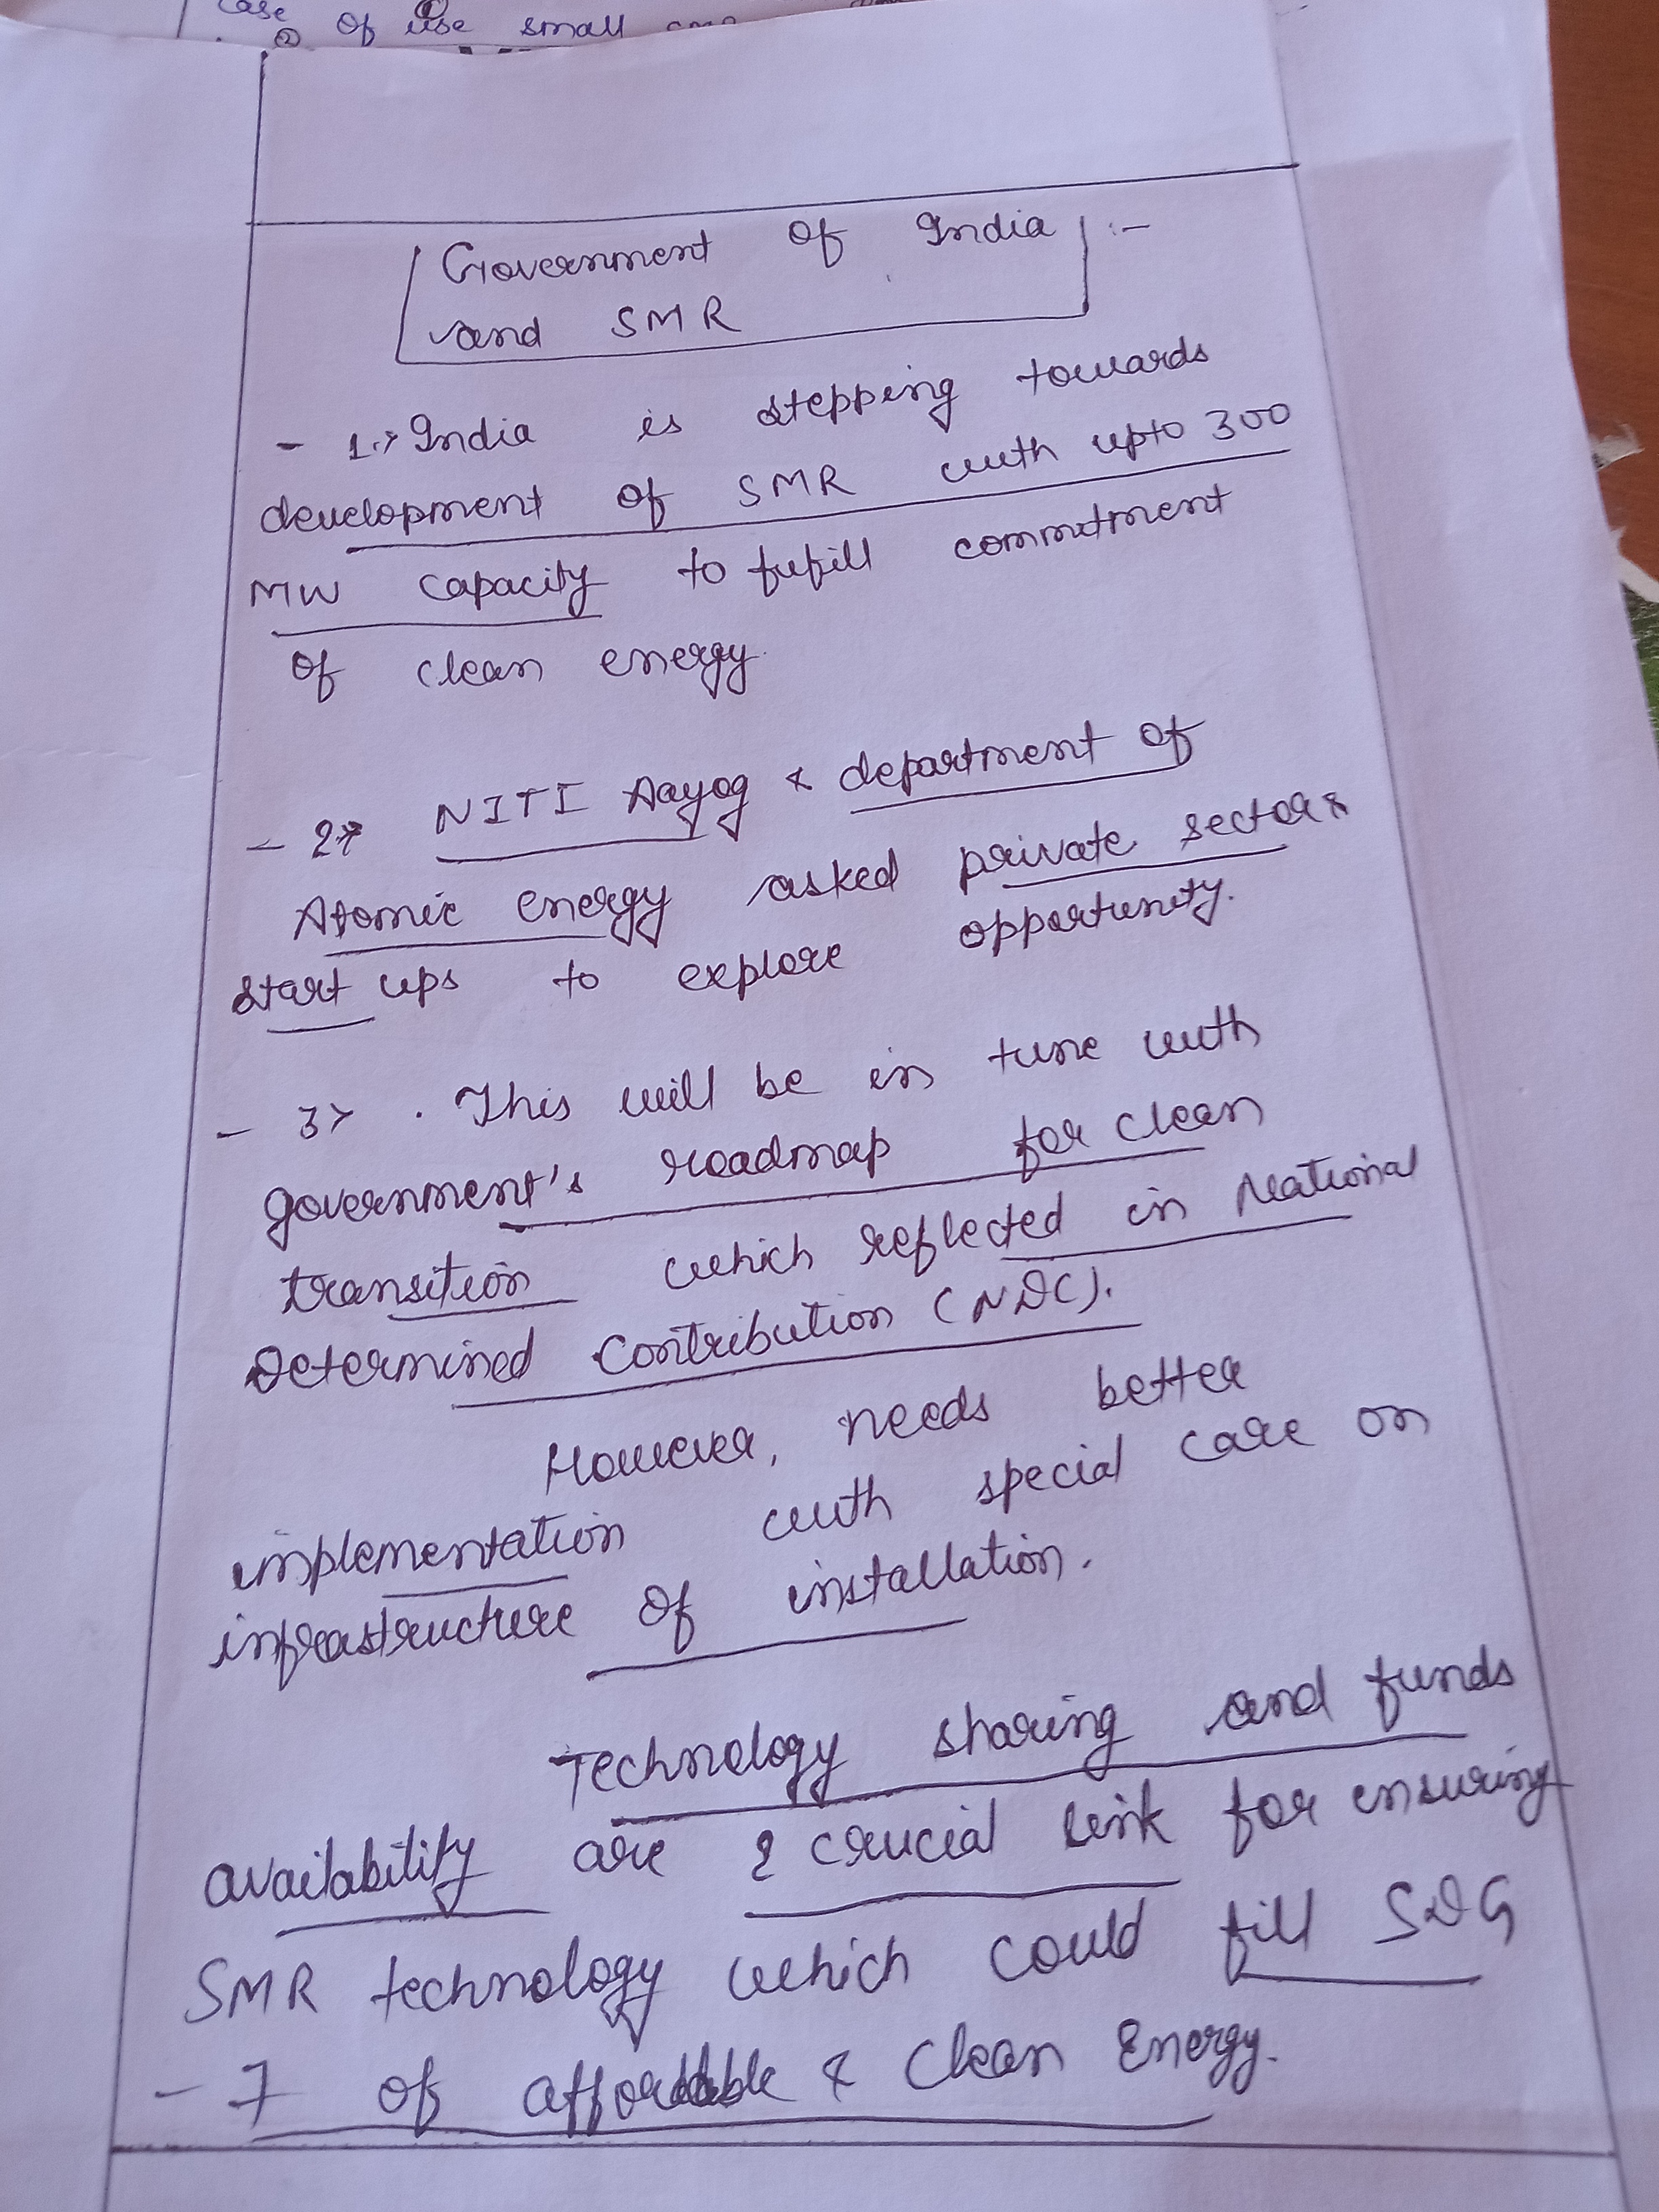 case
② of use small
①
Government of India :-
and SMR
- 1.> India is stepping towards
development of SMR with upto 300
MW capacity to fufill commitment
of clean energy.
- 2> NITI Aayog & department of
Atomic energy asked private sector &
start ups to explore opportunity.
- 3> . This will be in tune with
government's roadmap for clean
transition which reflected in National
Determined Contribution (NDC).
However, needs better
implementation with special care on
infrastructure of installation.
Technology sharing and funds
availability are 2 crucial link for ensuring
SMR technology which could fill SDG
- 7 of affordable & Clean Energy.